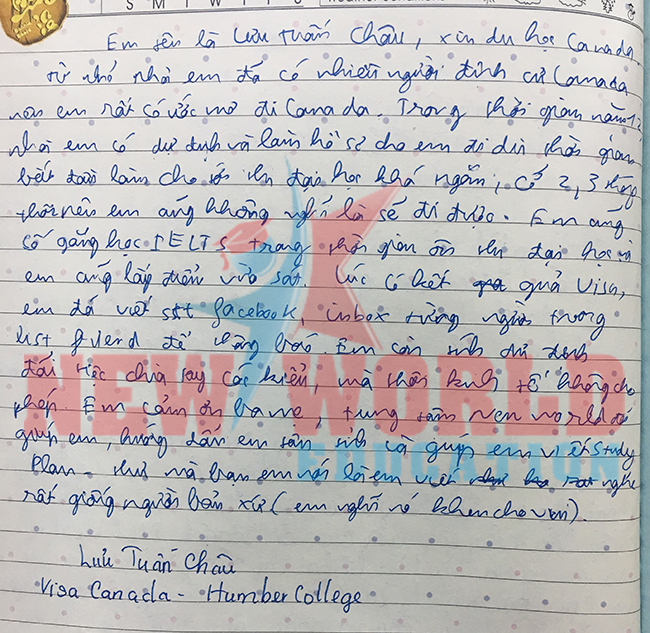 S M T W T F S
Em tên là Lưu Tuấn Châu, xin du học Canada.
Từ nhỏ nhà em đã có nhiều người định cư Canada
nên em rất có ước mơ đi Canada. Trong thời gian năm 12
nhà em có dự định và làm hồ sơ cho em đi dù thời gian
bắt đầu làm cho tới thi đại học khá ngắn, cỡ 2, 3 tháng
thôi nên em cũng không nghĩ là sẽ đi được. Em cũng
cố gắng học IELTS trong thời gian ôn thi đại học và
em cũng lấy điểm vừa sát. Lúc có kết quả Visa,
em đã viết stt facebook, inbox từng người trong
list friend để thông báo. Em còn tính dự định
đãi tiệc chia tay các kiểu, mà thôi kinh tế không cho
phép. Em cảm ơn ba mẹ, trung tâm New world đã
giúp em, hướng dẫn em tận tình và giúp em viết Study
Plan - thư mà bạn em nói là em viết nghe
rất giống người bản xứ (em nghĩ nó khen cho vui).
Lưu Tuấn Châu
Visa Canada - Humber College
NEW WORLD
EDUCATION